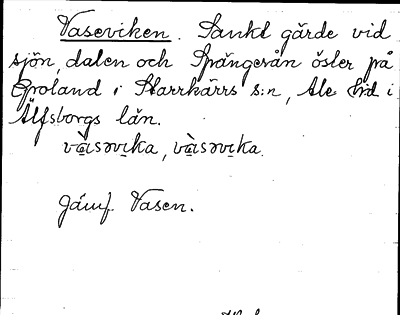 Vaseviken. Sankt gärde vid
sjön, dalen och Spångeån öster på
Groland i Starrkärrs s:n, Ale hd i
Älfsborgs län.
Jämf. Vasen.